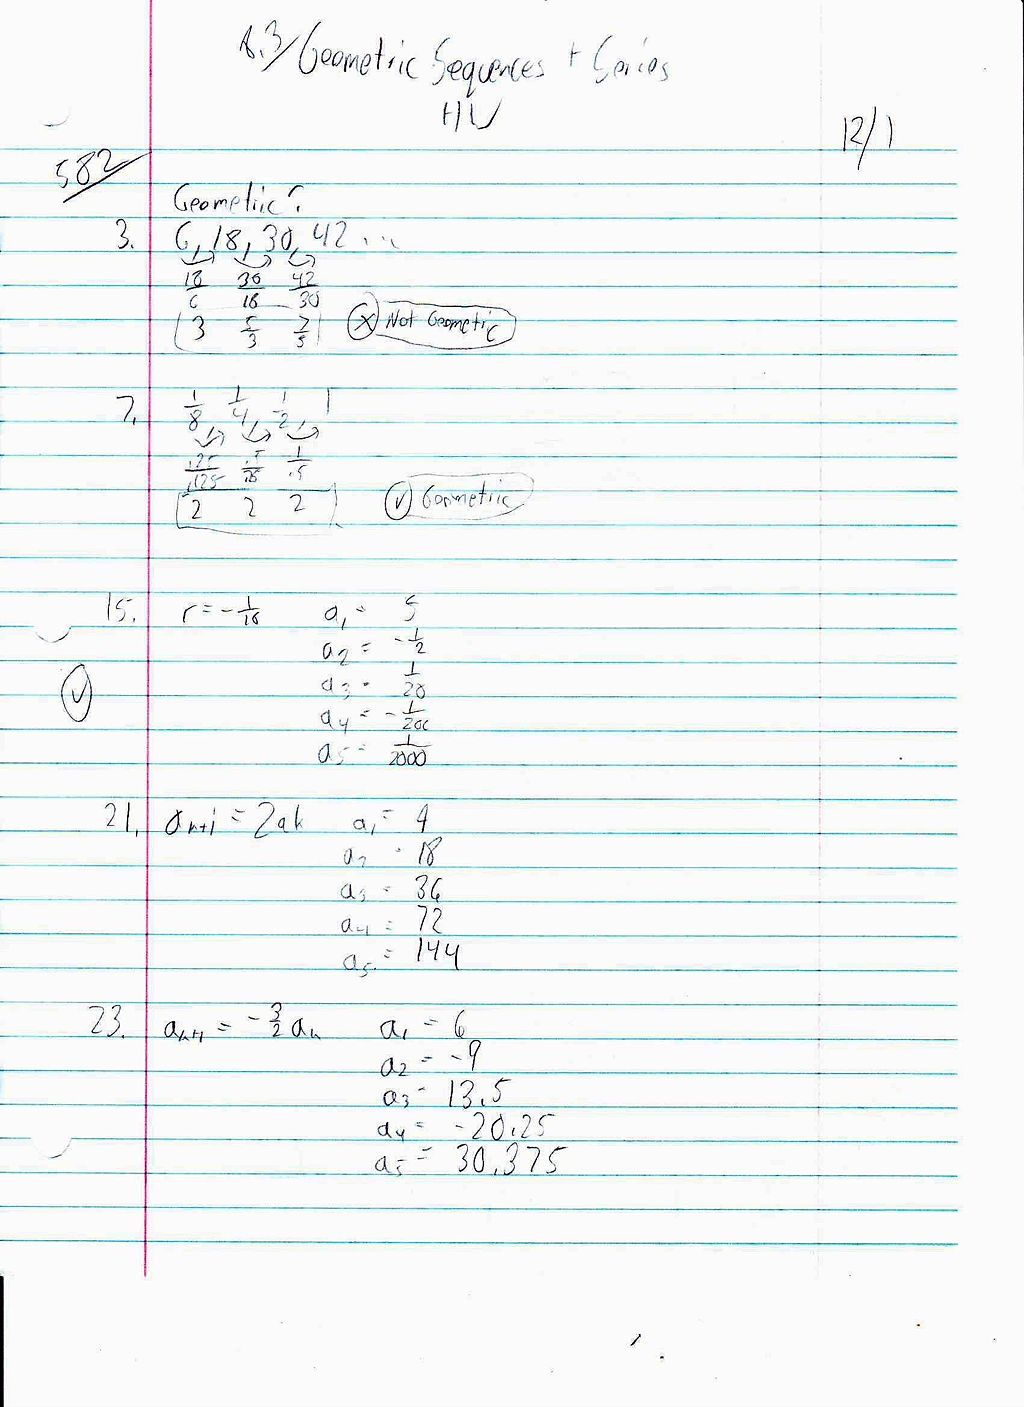 8.3/Geometric Sequences + Series
HW
12/1
582
Geometric?
3. 6, 18, 30, 42 ...
18/6 30/18 42/30
3 5/3 7/5 X Not Geometric
7. 1/8, 1/4, 1/2, 1
.25/.125 .5/.25 1/.5
2 2 2 ✓ Geometric
15. r = -1/10 a1 = 5
a2 = -1/2
a3 = 1/20
✓
a4 = -1/200
a5 = 1/2000
21. ak+1 = 2ak a1 = 9
a2 = 18
a3 = 36
a4 = 72
a5 = 144
23. ak+1 = -3/2 ak a1 = 6
a2 = -9
a3 = 13.5
a4 = -20.25
a5 = 30.375